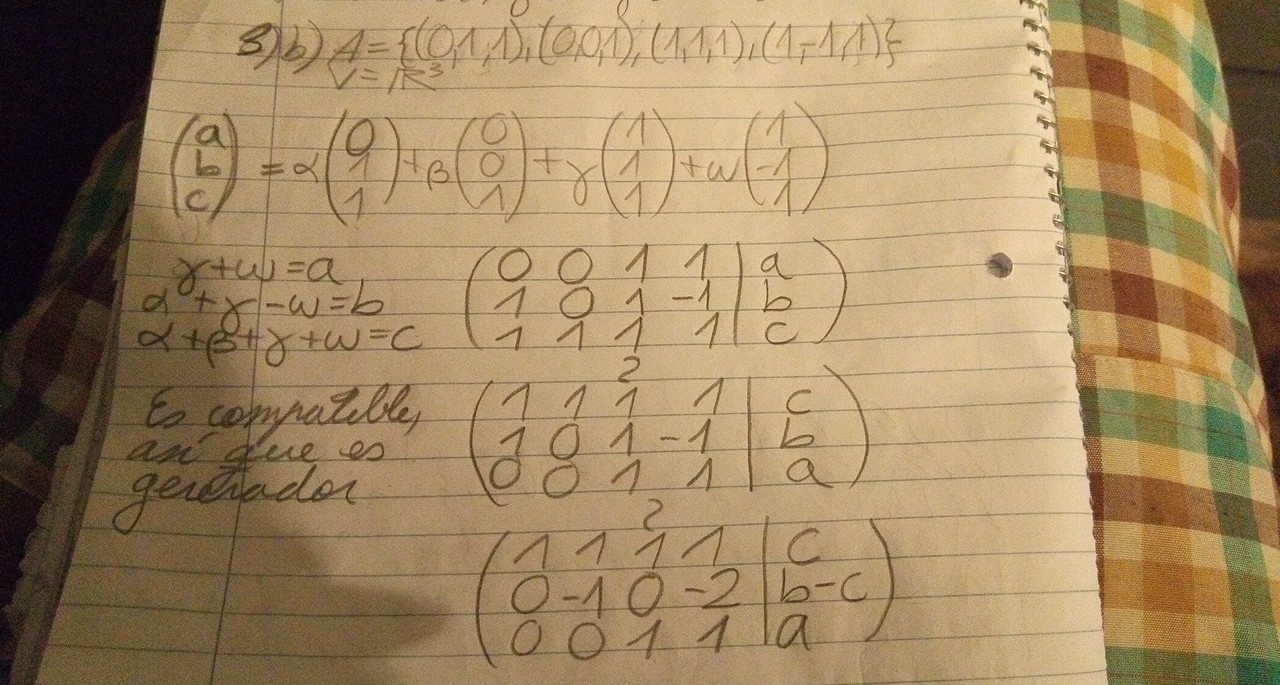 3)b) A={(0,1,1),(0,0,1),(1,1,1),(1,-1,1)}
V=ℝ³
(a b c) = α(0 1 1)+β(0 0 1)+γ(1 1 1)+ω(1 -1 1)
γ+ω=a
α+γ-ω=b
α+β+γ+ω=c
(0 0 1 1 | a
1 0 1 -1 | b
1 1 1 1 | c)
2
Es compatible,
así que es
generador
(1 1 1 1 | c
1 0 1 -1 | b
0 0 1 1 | a)
2
(1 1 1 1 | c
0 -1 0 -2 | b-c
0 0 1 1 | a)